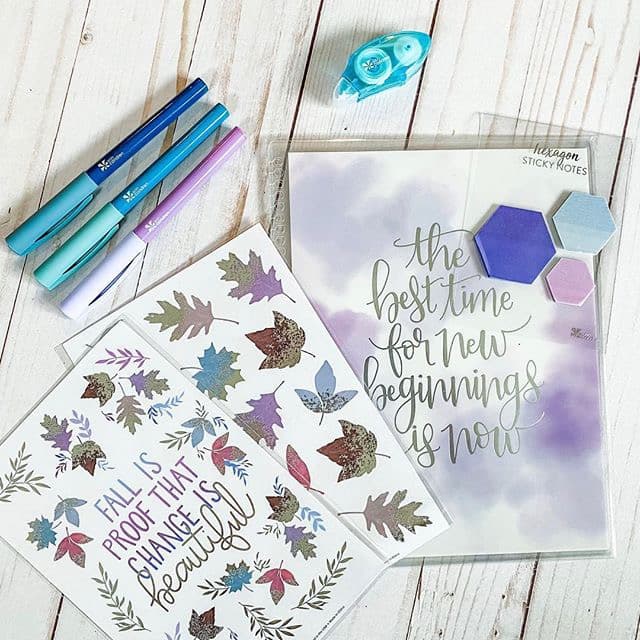 hexagon
STICKY NOTES
the
best time
for new
beginnings
is now
FALL IS
PROOF THAT
CHANGE IS
beautiful